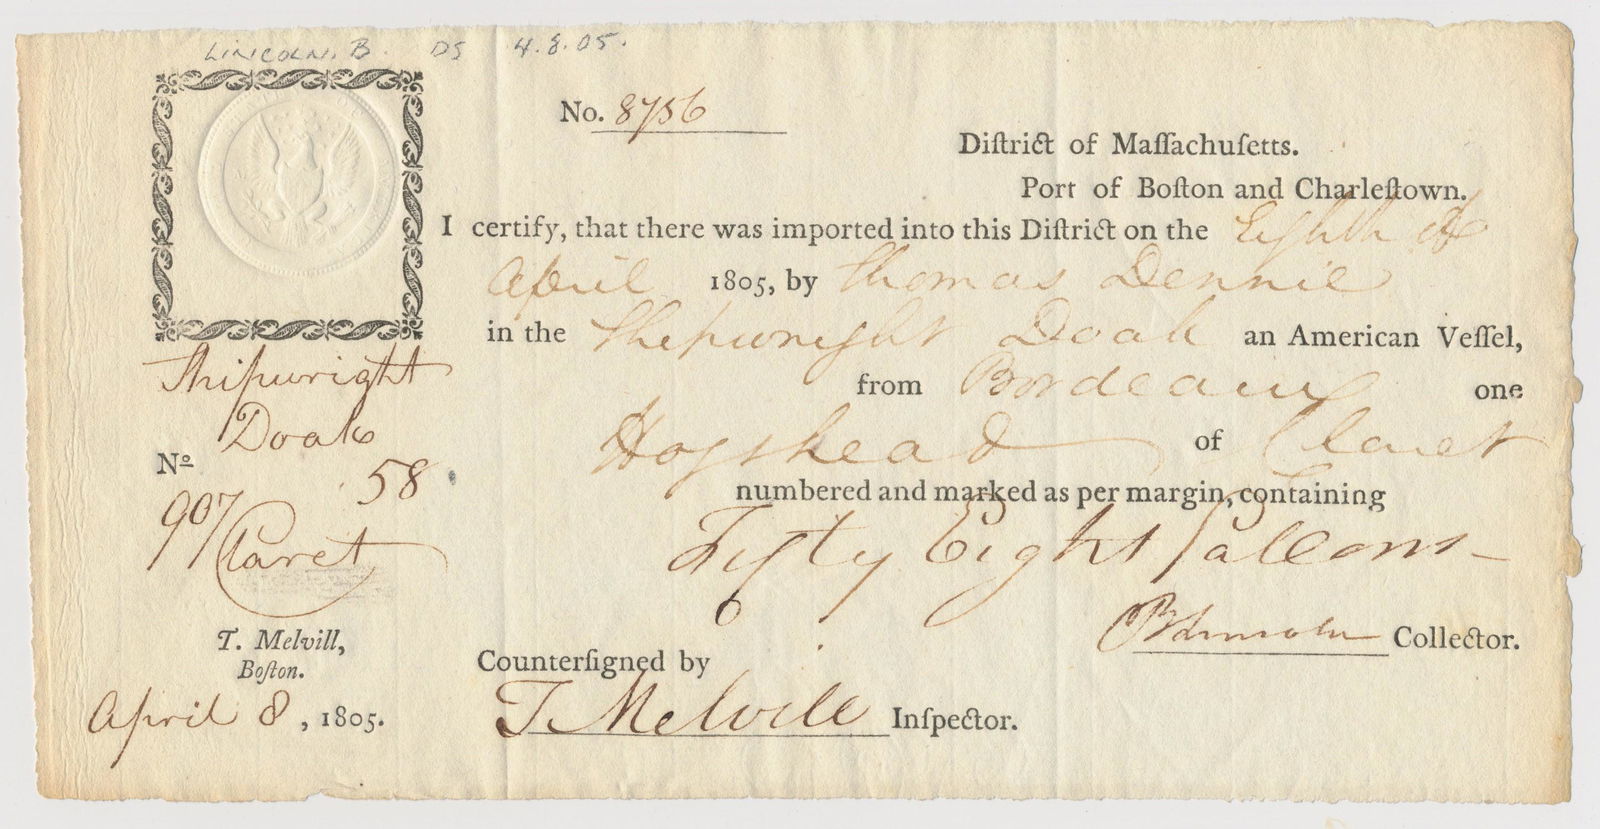 LINCOLN. B. DS 4.8.05.
No. 8756
Diſtrict of Maſſachuſetts.
Port of Boſton and Charleſtown.
I certify, that there was imported into this Diſtrict on the Eighth of
April 1805, by Thomas Dennie
in the Shipwright Doak an American Veſſel,
from Bordeaux one
Hogshead of Claret
numbered and marked as per margin, containing
Fifty Eight Gallons
B Lincoln Collector.
Counterſigned by
T Melvill Inſpector.
Shipwright
Doak
No
58
907
Claret
T. Melvill,
Boſton.
April 8, 1805.